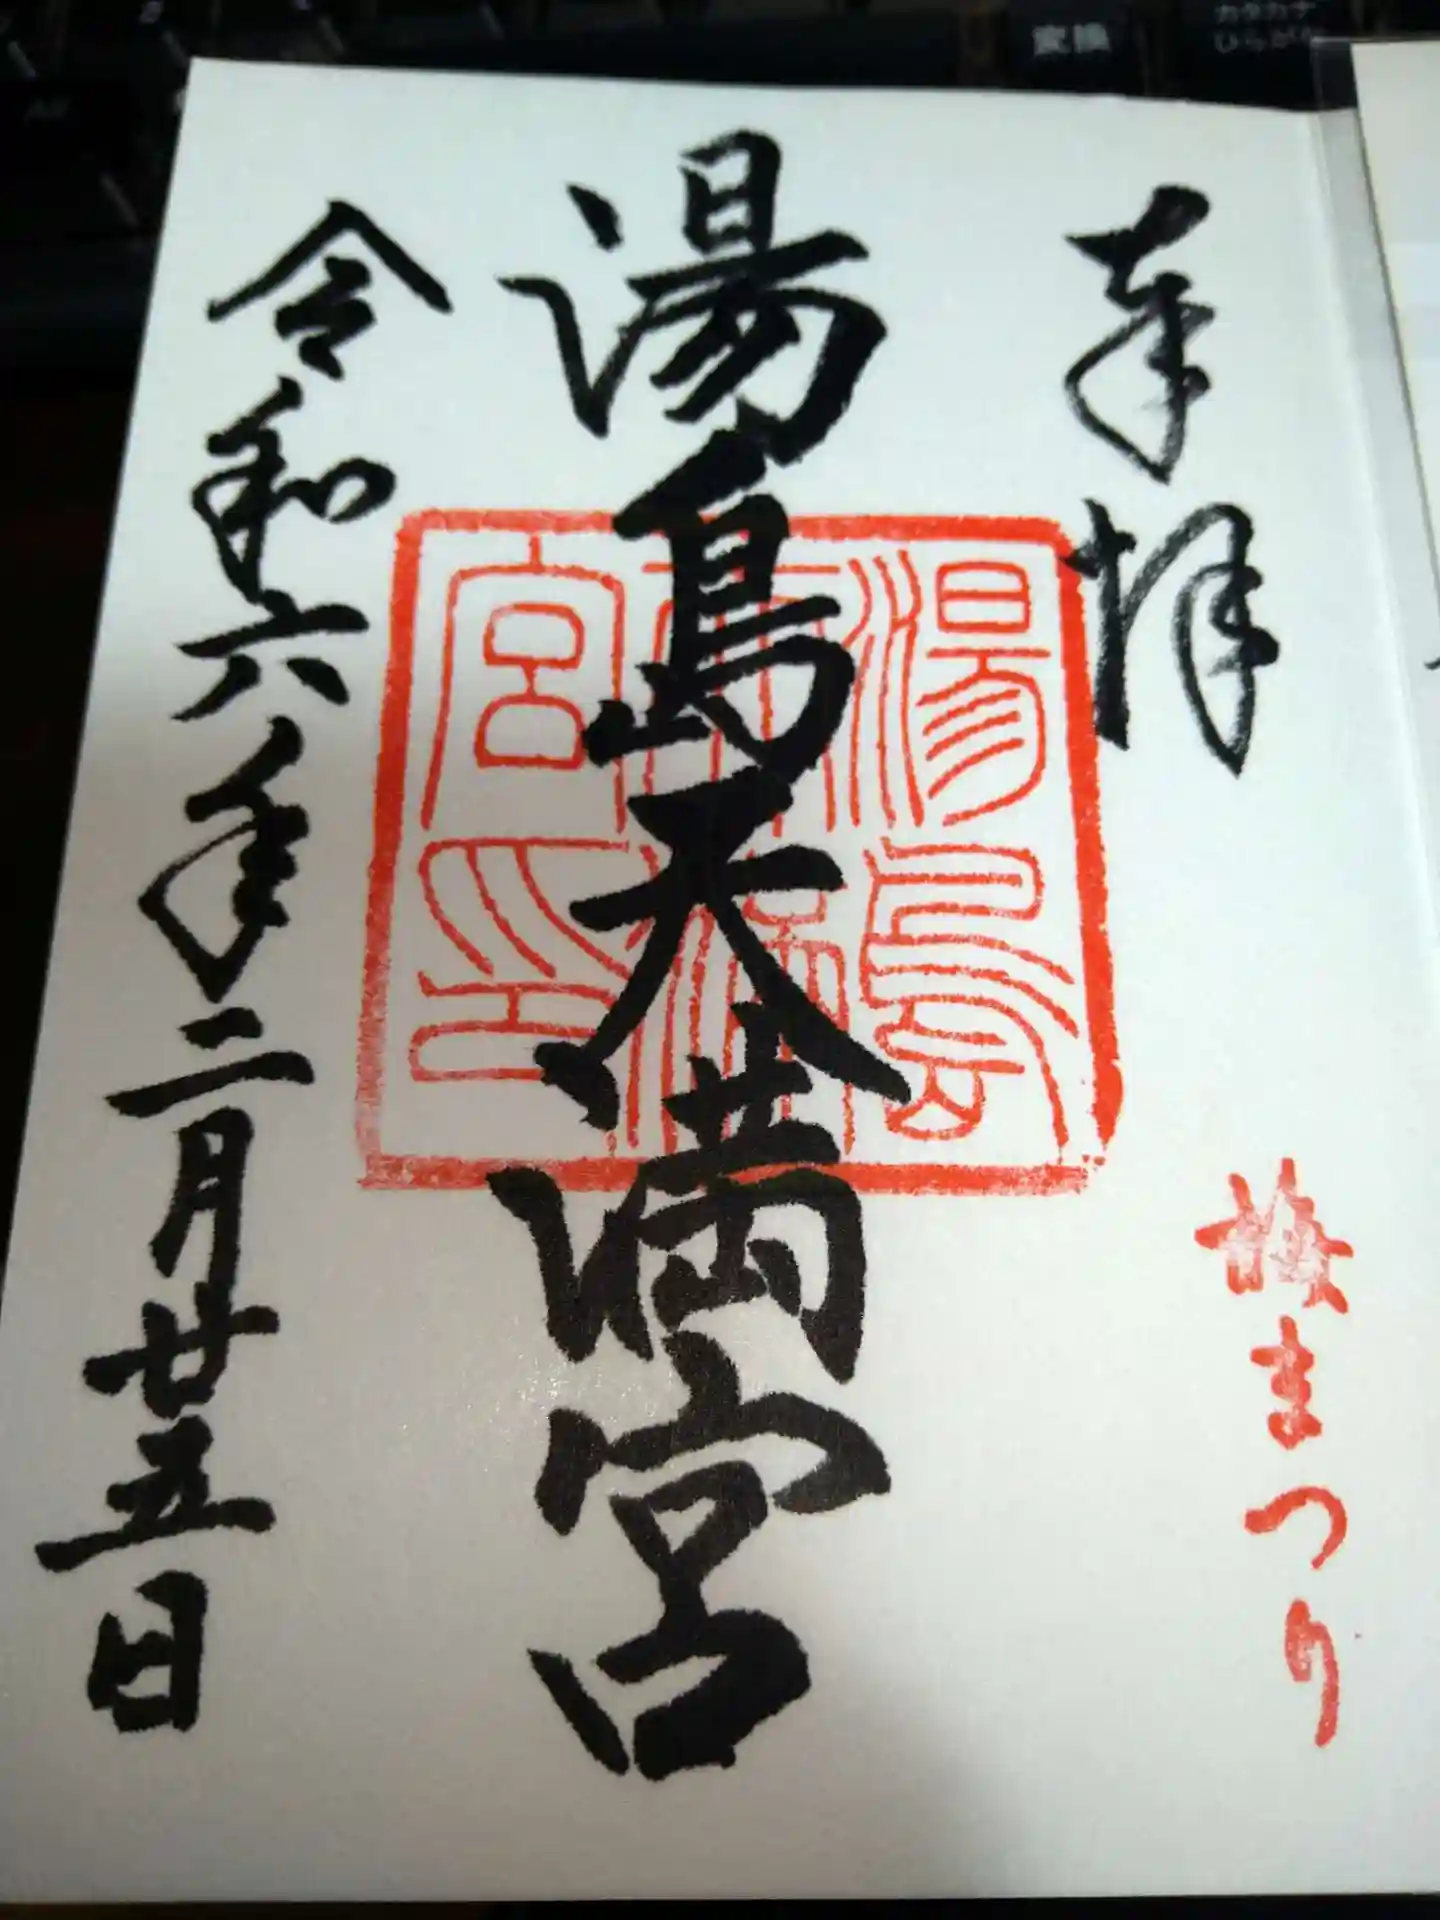 変換
カタカナ
ひらがな
奉拝
湯島天満宮
湯島
天満
宮印
令和六年二月廿五日
梅まつり